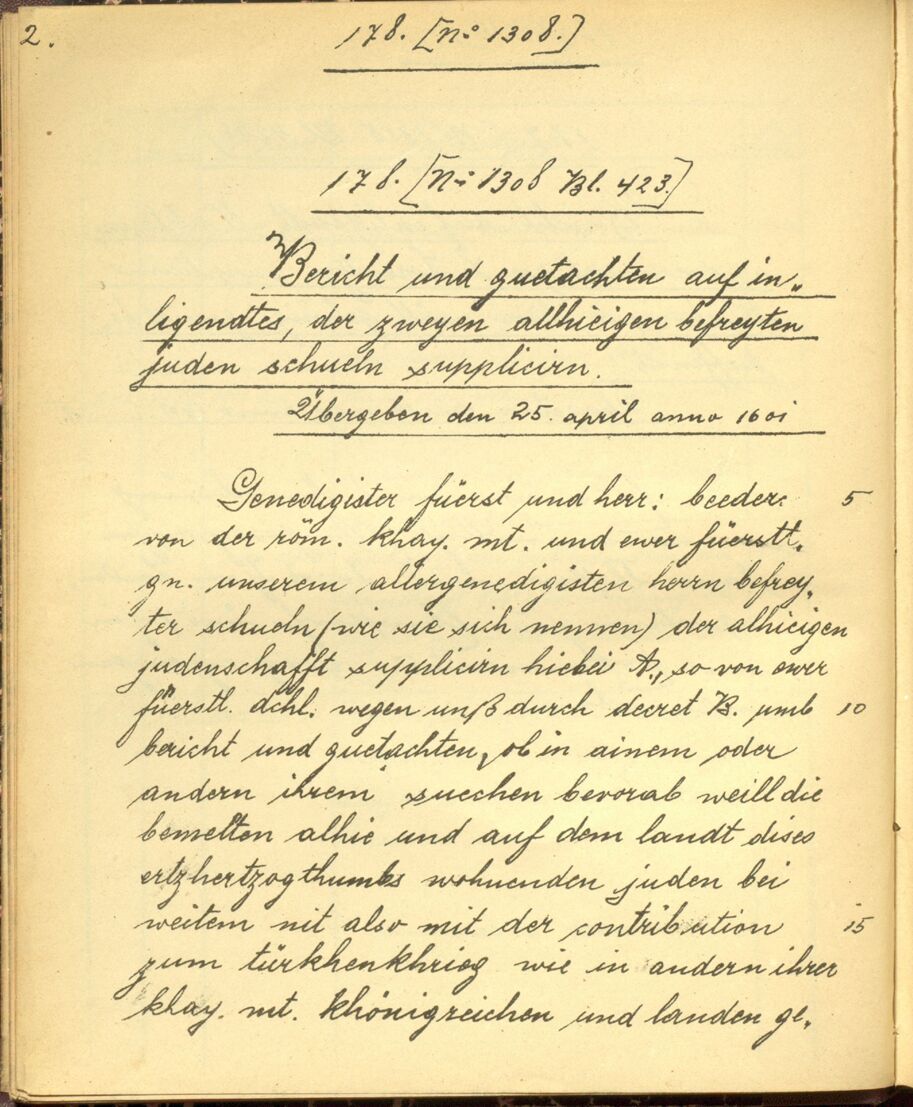 2.
178. [No 1308.]
178. [No 1308 Bl. 423.]
Bericht und guetachten auf in„
ligendtes, der zweyen allhieigen befreyten
juden schueln supplicirn.
Übergeben den 25. april anno 1601
Genedigister füerst und herr: beeder 5
von der röm. khay. mt. und ewer füerstl.
gn. unserem allergenedigisten herrn befrey„
ter schueln (wie sie sich nennen) der alhieigen
judenschafft supplicirn hiebei A., so von ewer
füerstl. dchl. wegen unß durch decret B. umb 10
bericht und guetachten, ob in ainem oder
andern ihrem suechen bevorab weill die
bemelten alhie und auf dem landt dises
ertzhertzogthumbs wohnenden juden bei
weitem nit also mit der contribution 15
zum türkhenkhrieg wie in andern ihrer
khay. mt. khönigreichen und landen ge„